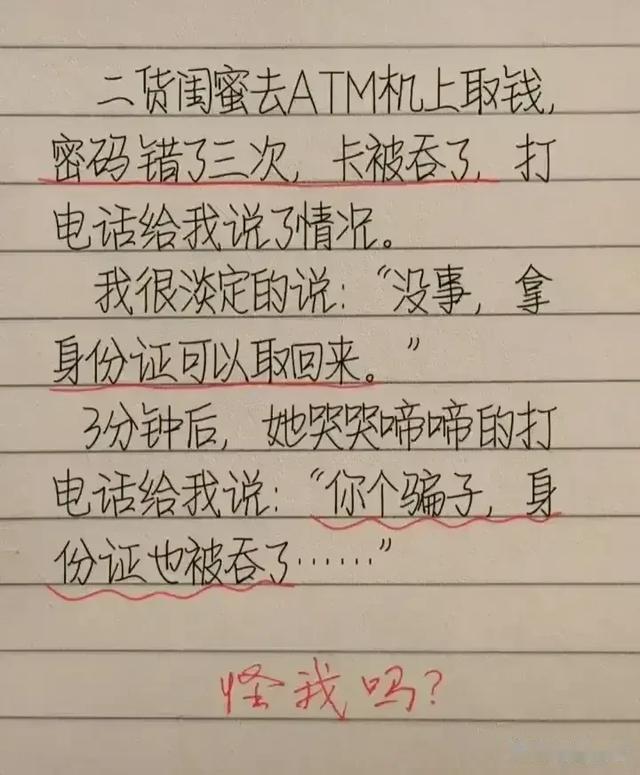 二货闺蜜去ATM机上取钱,
密码错了三次, 卡被吞了, 打
电话给我说了情况。
我很淡定的说:“没事, 拿
身份证可以取回来。”
3分钟后, 她哭哭啼啼的打
电话给我说:“你个骗子, 身
份证也被吞了……”
怪我吗?